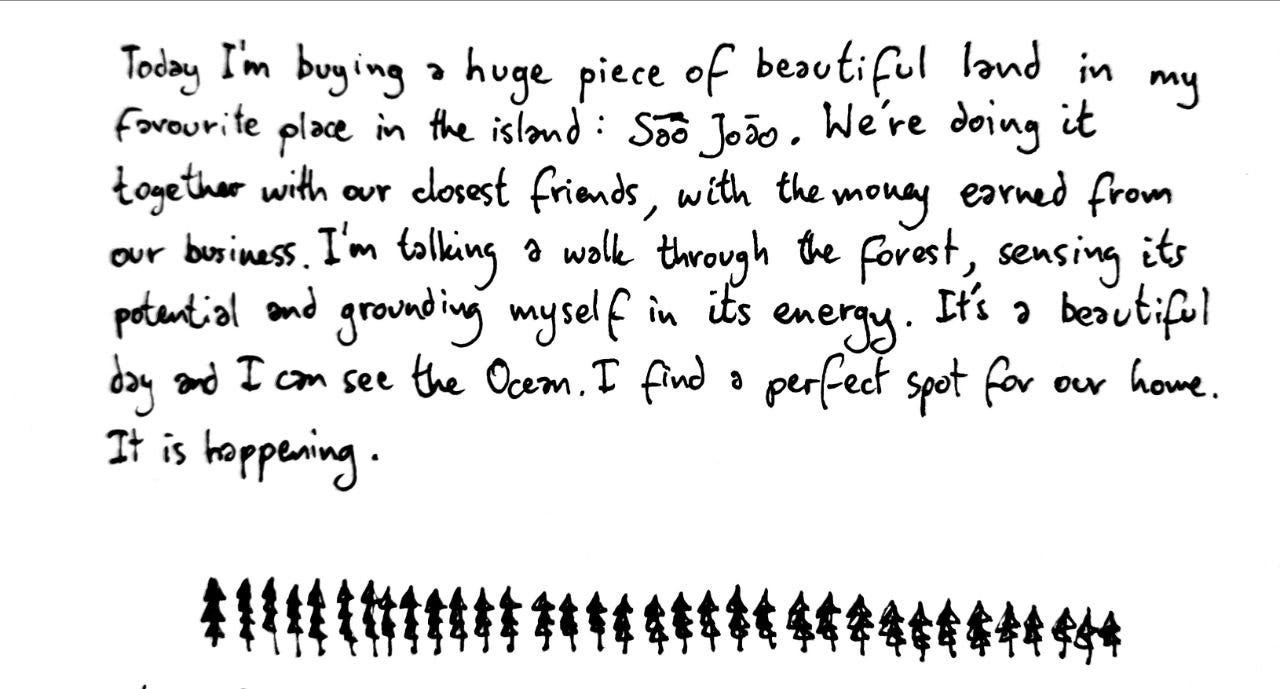 Today I'm buying a huge piece of beautiful land in my
favourite place in the island: São João. We're doing it
together with our closest friends, with the money earned from
our business. I'm talking a walk through the forest, sensing its
potential and grounding myself in its energy. It's a beautiful
day and I can see the Ocean. I find a perfect spot for our home.
It is happening.